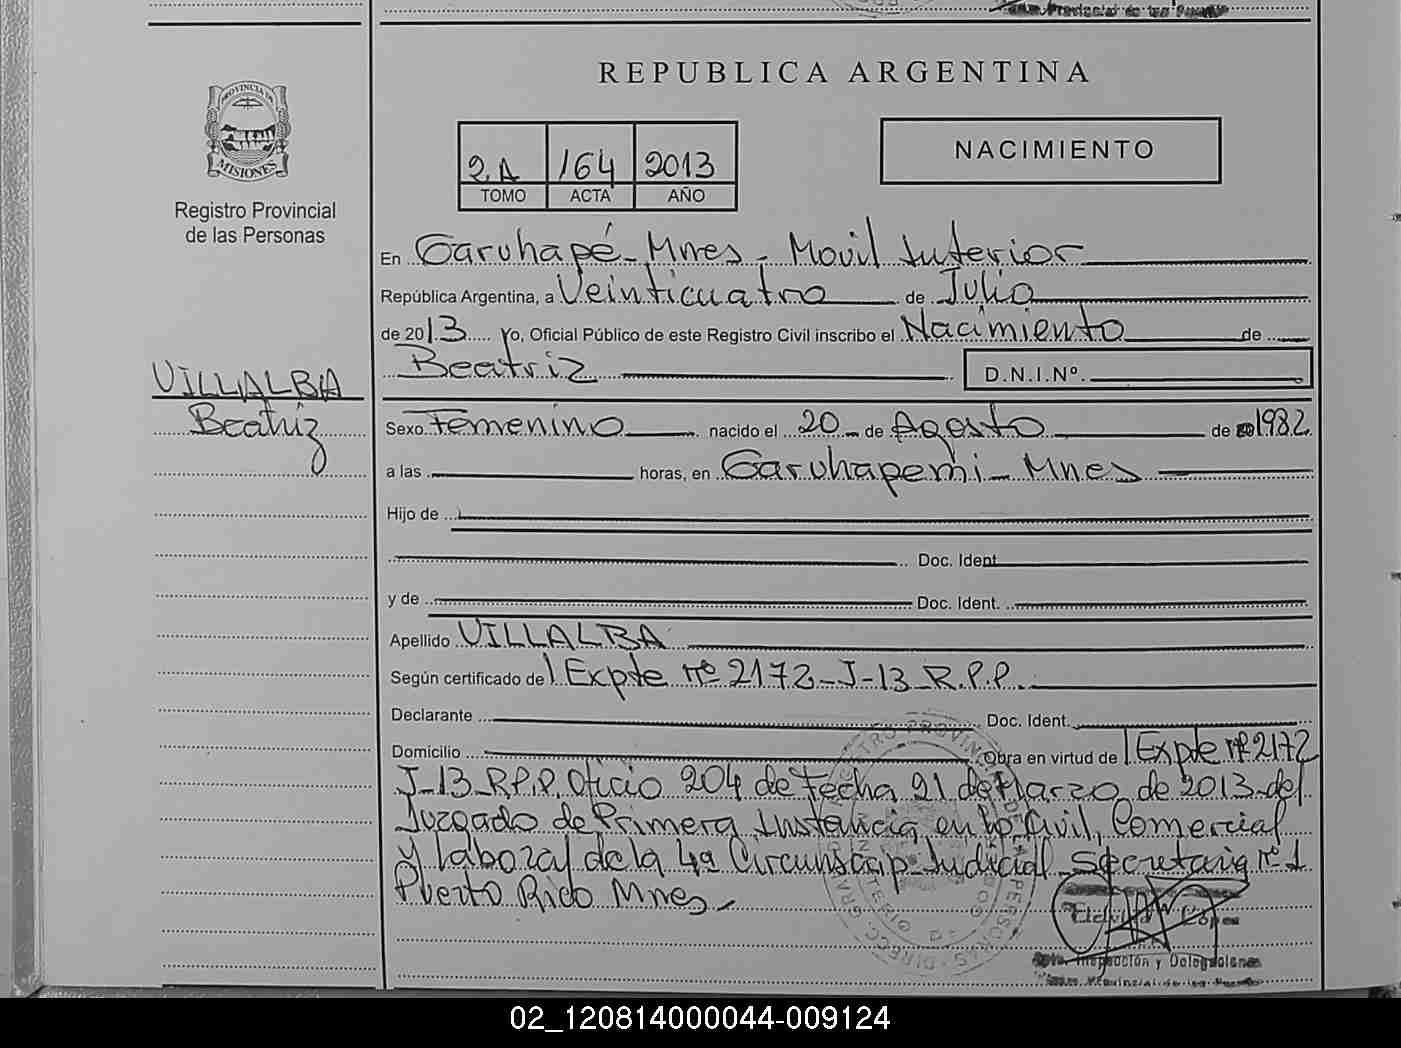 REPUBLICA ARGENTINA
PROVINCIA DE
MISIONES
Registro Provincial
de las Personas
2A 164 2013
TOMO ACTA AÑO
NACIMIENTO
En Garuhapé - Mnes - Movil Interior
República Argentina, a Veinticuatro de Julio
de 2013 Yo, Oficial Público de este Registro Civil inscribo el Nacimiento de
Beatriz D.N.I Nº.
VILLALBA
Beatriz
Sexo Femenino nacido el 20 de Agosto de 1982
a las horas, en Garuhapemi - Mnes
Hijo de
Doc. Ident.
y de Doc. Ident.
Apellido VILLALBA
Según certificado de Expte nº 2172-J-13 R.P.P.
Declarante Doc. Ident.
Domicilio Obra en virtud de Expte nº 2172
J-13-R.P.P. Oficio 204 de Fecha 21 de Marzo de 2013 del
Juzgado de Primera Instancia en lo Civil, Comercial
y laboral de la 4ª Circunscrip. Judicial Secretaria nº 1
Puerto Rico Mnes.
López
Dpto. Inspección y Delegaciones
02_120814000044-009124